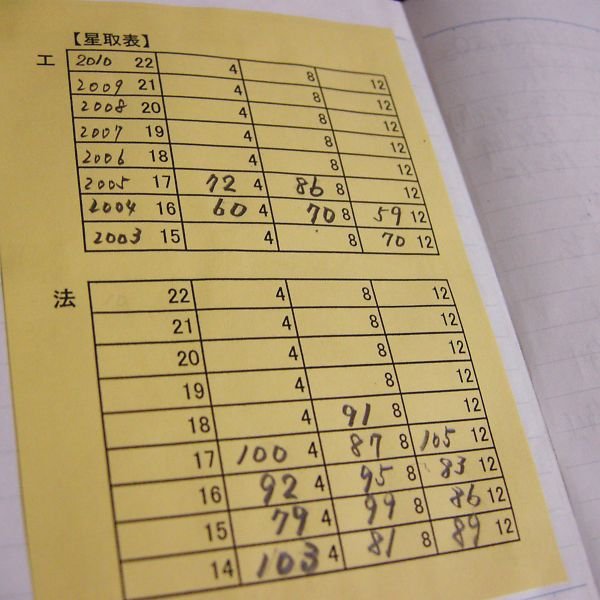 【星取表】
工 2010 22 4 8 12
2009 21 4 8 12
2008 20 4 8 12
2007 19 4 8 12
2006 18 4 8 12
2005 17 72 4 86 8 12
2004 16 60 4 70 8 59 12
2003 15 4 8 70 12
法 22 4 8 12
21 4 8 12
20 4 8 12
19 4 8 12
18 4 91 8 12
17 100 4 87 8 105 12
16 92 4 95 8 83 12
15 79 4 99 8 86 12
14 103 4 81 8 89 12